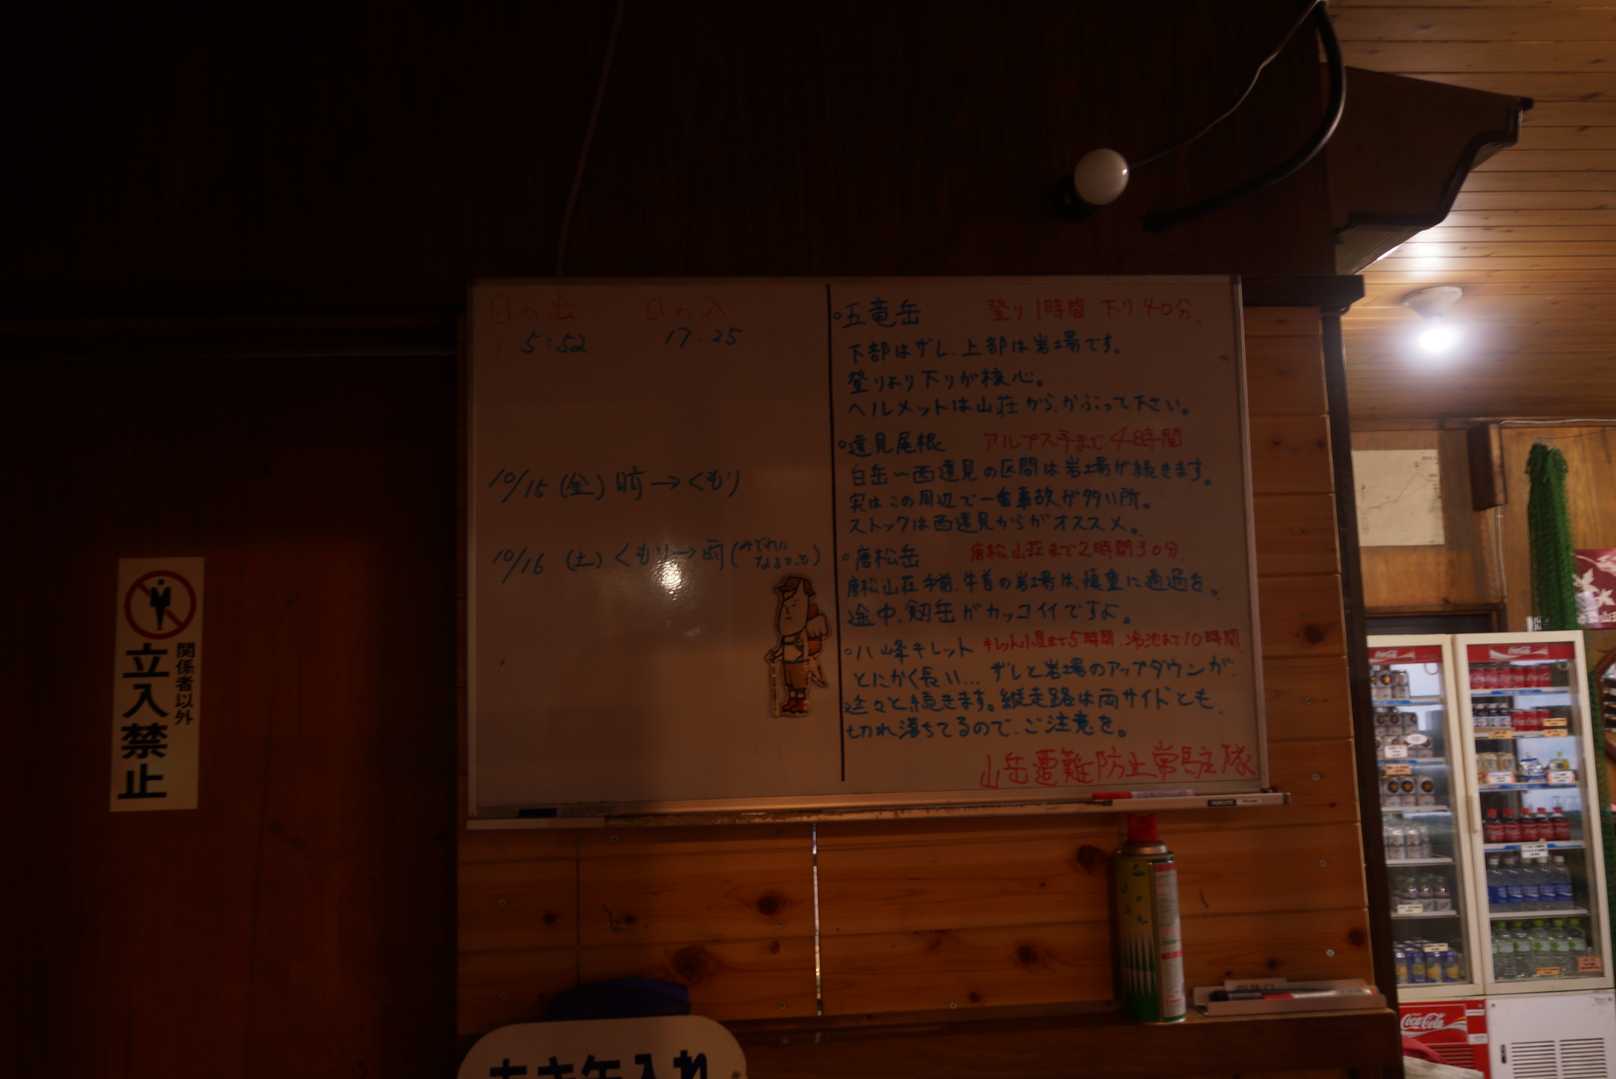 日の出 日の入
5:52 17:25
10/15 (金) 晴→くもり
10/16 (土) くもり→雨(みぞれに
なるかも)
○五竜岳 登り1時間 下り40分
下部はザレ、上部は岩場です。
登りより下りが核心。
ヘルメットは山荘から、かぶって下さい。
○遠見尾根 アルプス平まで4時間
白岳〜西遠見の区間は岩場が続きます。
実はこの周辺で一番事故が多い所。
ストックは西遠見からがオススメ。
○唐松岳 唐松山荘まで2時間30分
唐松山荘手前、牛首の岩場は、慎重に通過を。
途中、剱岳がカッコイイですよ。
○八峰キレット キレット小屋まで5時間 冷池まで10時間
とにかく長い… ザレと岩場のアップダウンが、
延々と続きます。縦走路は両サイドとも、
切れ落ちてるので、ご注意を。
山岳遭難防止常駐隊
関係者以外
立入禁止
あき缶入れ
Coca-Cola
Coca-Cola
Coca-Cola